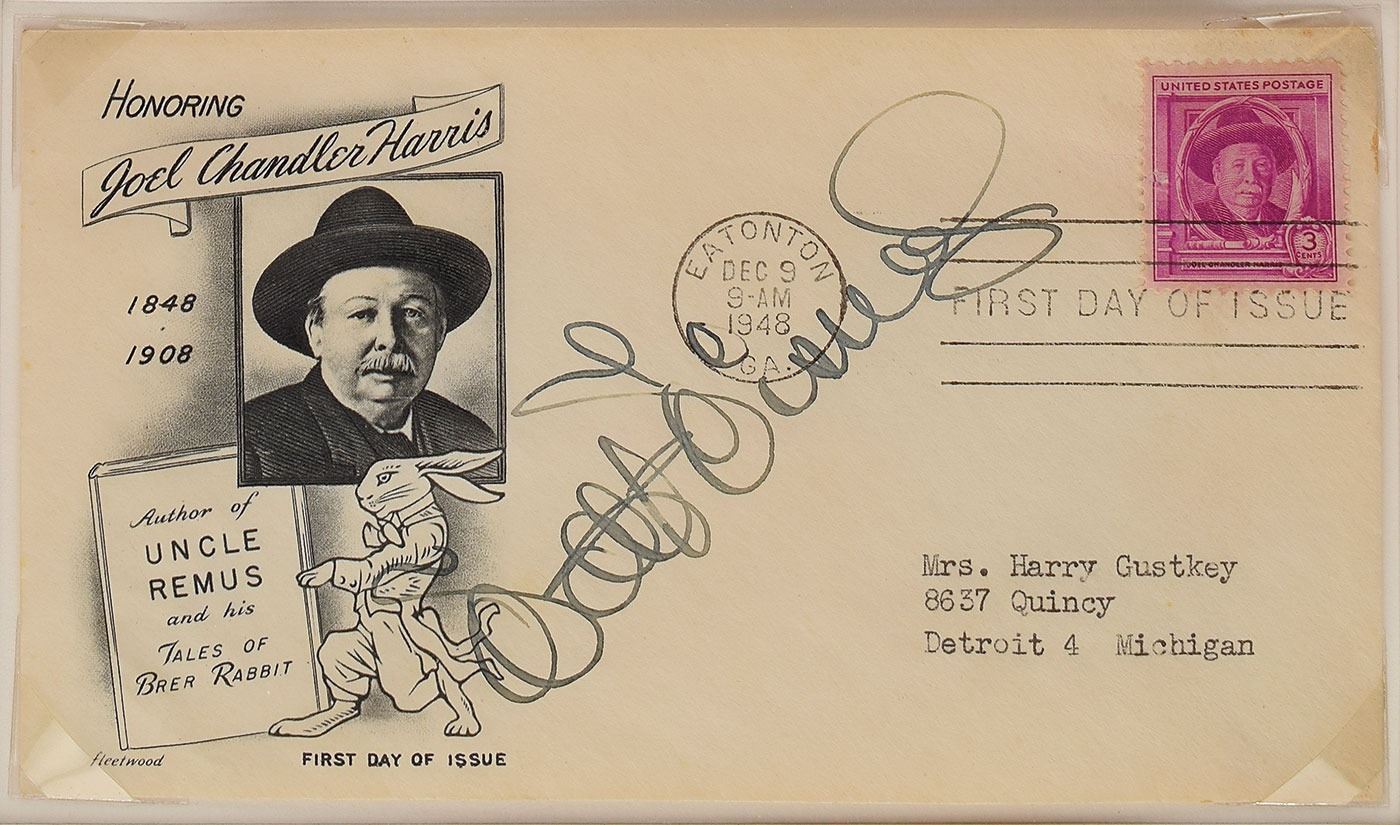 HONORING
Joel Chandler Harris
1848
1908
Author of
UNCLE
REMUS
and his
TALES OF
BRER RABBIT
fleetwood
FIRST DAY OF ISSUE
EATONTON
DEC 9
9-AM
1948
GA.
UNITED STATES POSTAGE
3
CENTS
JOEL CHANDLER HARRIS
FIRST DAY OF ISSUE
Mrs. Harry Gustkey
8637 Quincy
Detroit 4 Michigan